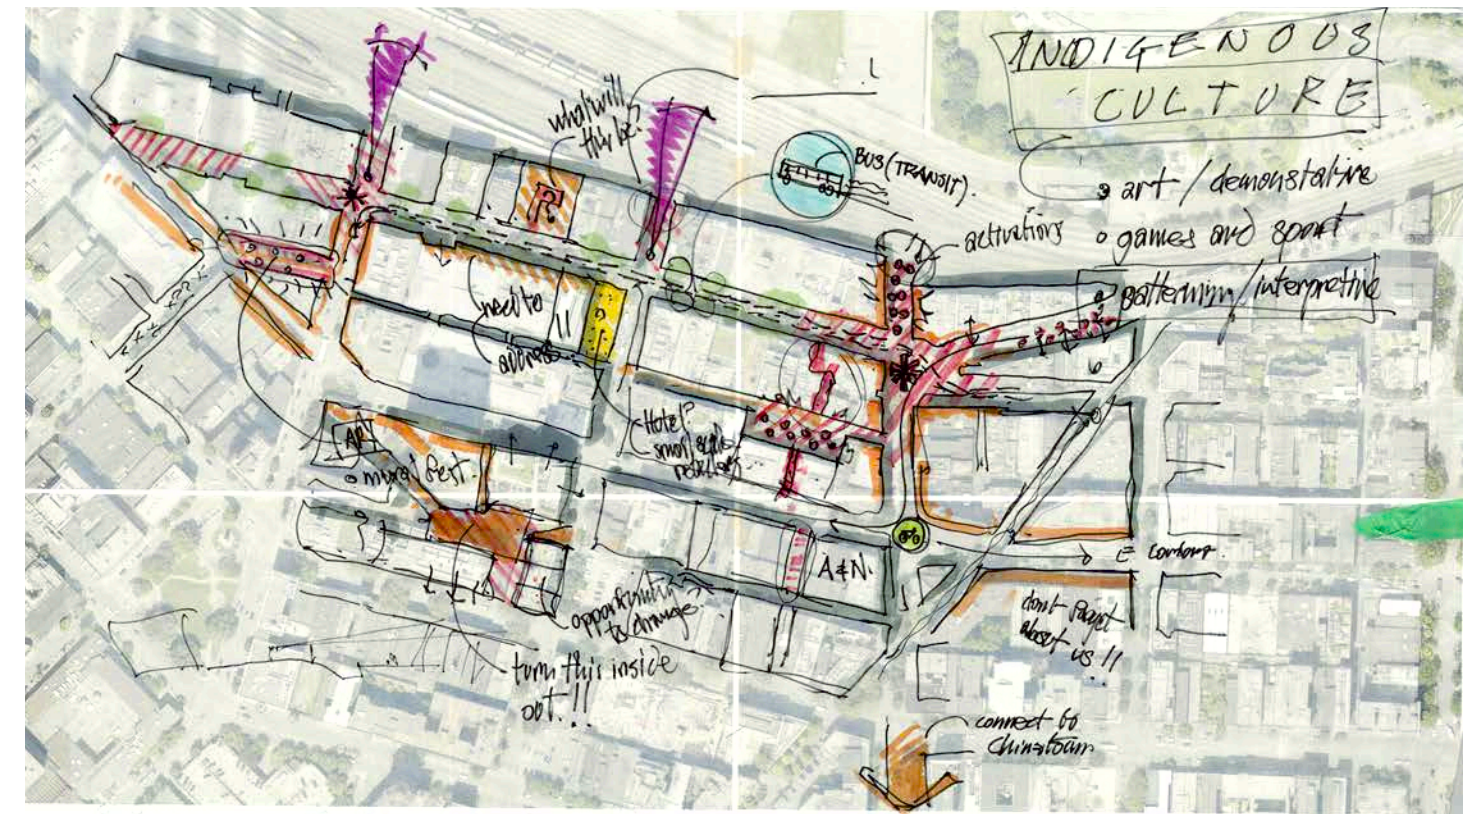 INDIGENOUS
CULTURE
art / demonstative
games and sport
patterning/interpretive
what will
this be?
BUS (TRANSIT).
activations
need to
address
Hotel?
small scale
ART
mural fest.
A & N.
opportunity
to change
turn this inside
out.!!
dont forget
about us !!
connect to
Chinatown